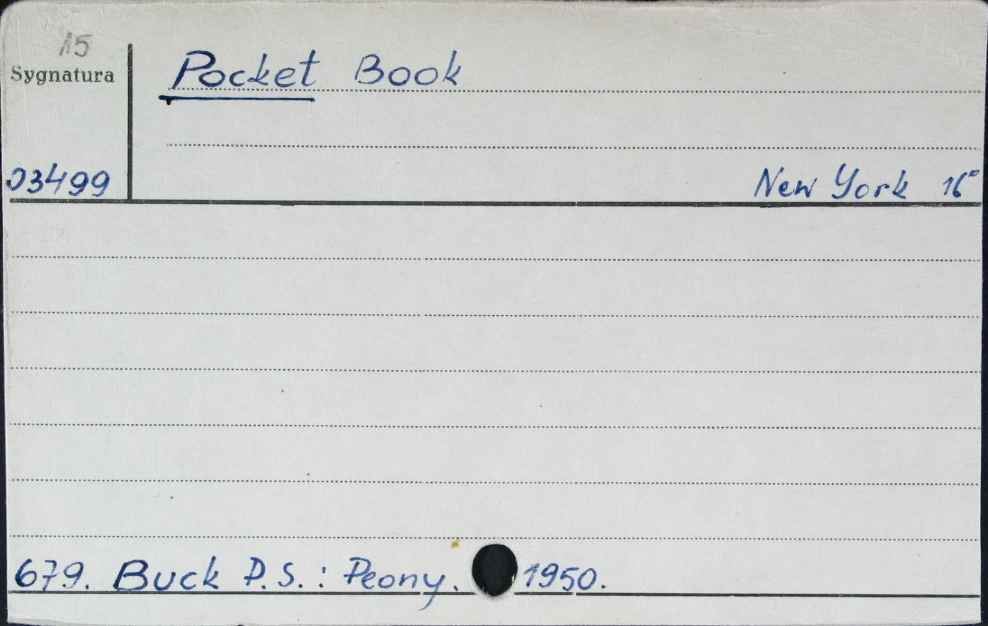 15
Sygnatura
Pocket Book
03499
New York 16°
679. Buck P.S.: Peony. 1950.